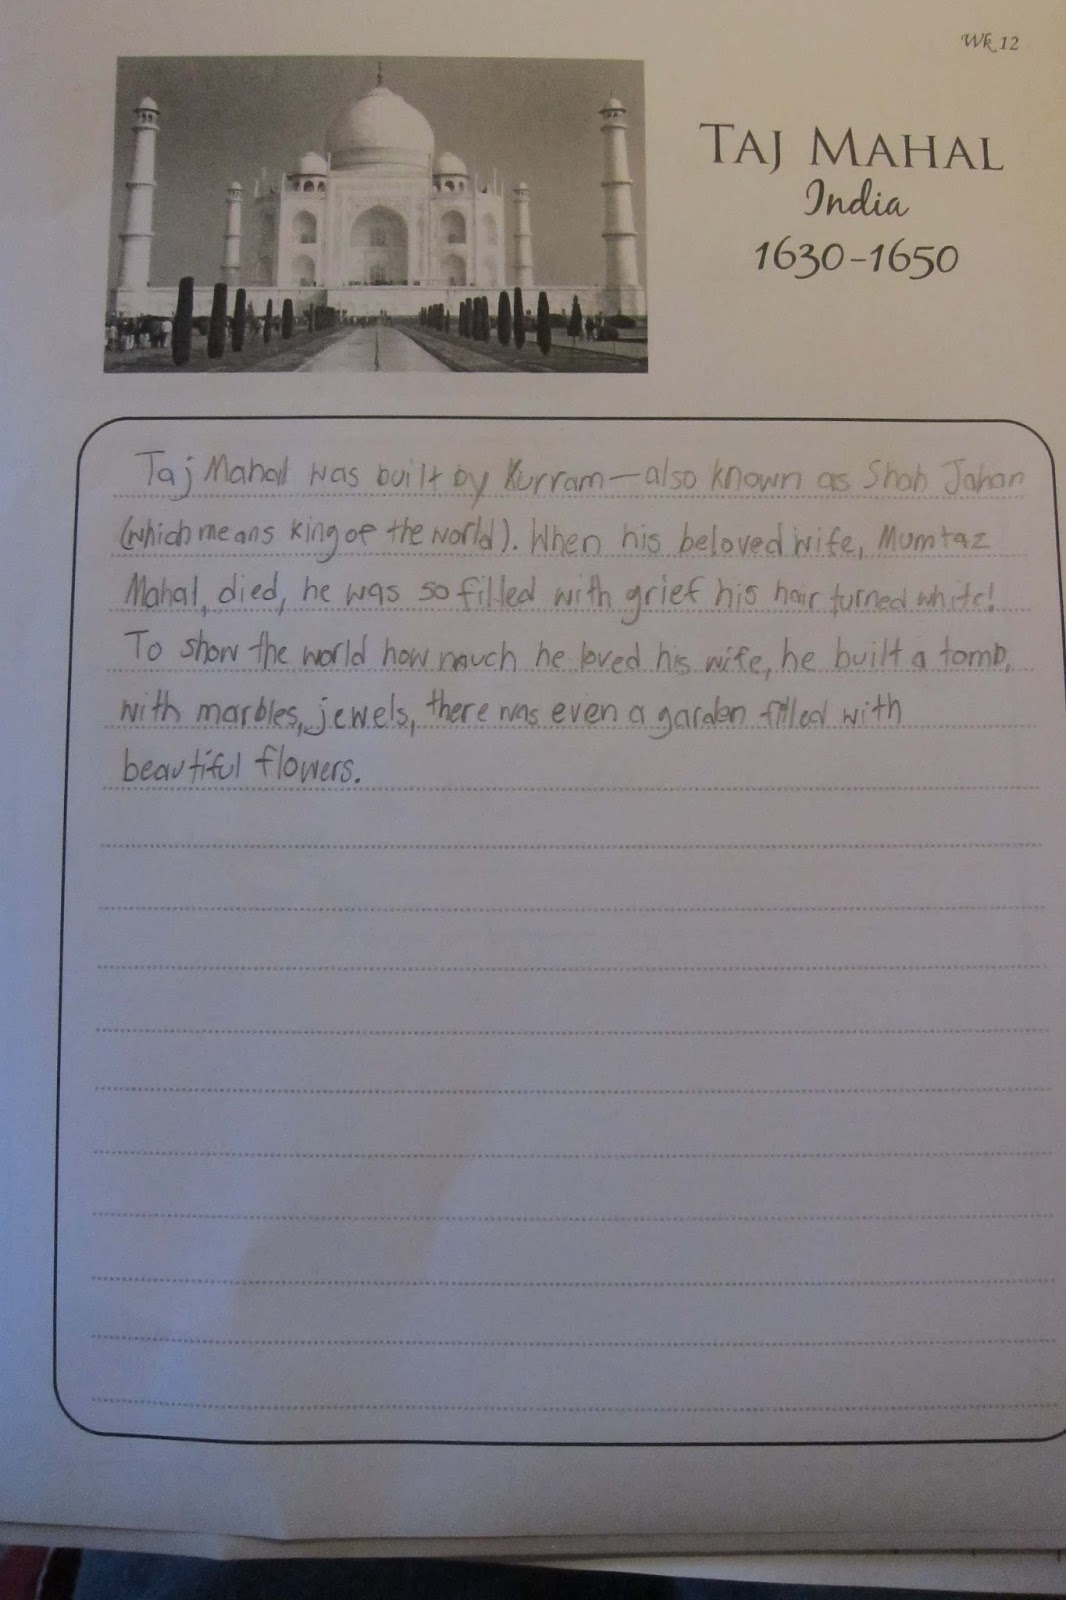 Wk 12
TAJ MAHAL
India
1630-1650
Taj Mahal was built by Kurram—also known as Shah Jahan
(which means king of the world). When his beloved wife, Mumtaz
Mahal, died, he was so filled with grief his hair turned white!
To show the world how much he loved his wife, he built a tomb,
with marbles, jewels, there was even a garden filled with
beautiful flowers.